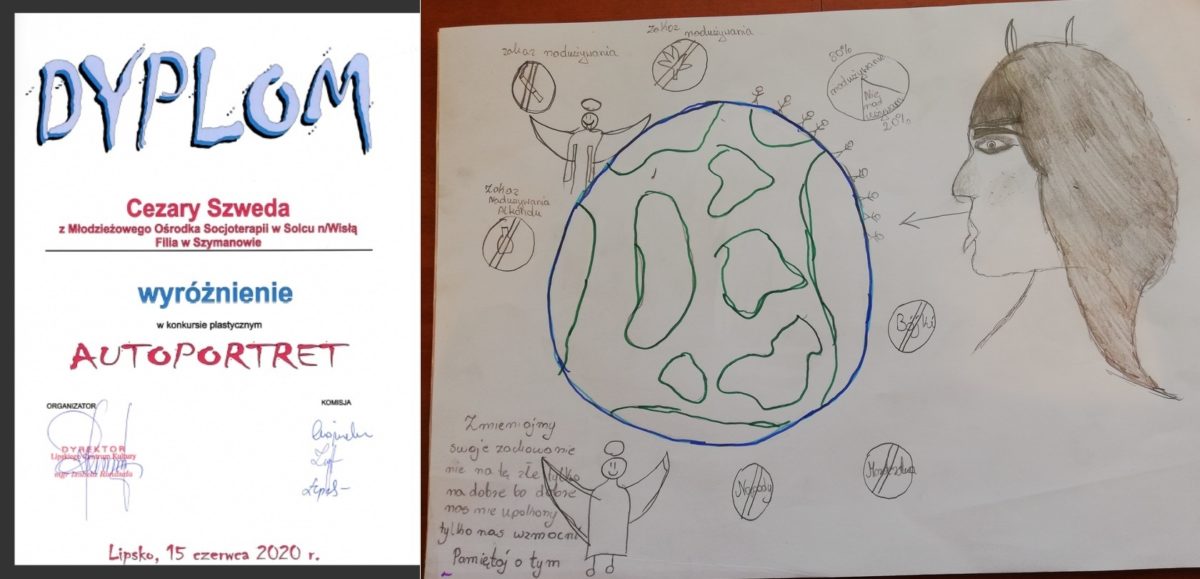 DYPLOM
Cezary Szweda
z Młodzieżowego Ośrodka Socjoterapii w Solcu n/Wisłą
Filia w Szymanowie
wyróżnienie
w konkursie plastycznym
AUTOPORTRET
ORGANIZATOR
KOMISJA
DYREKTOR
Lipskiego Centrum Kultury
mgr
Lipsko, 15 czerwca 2020 r.
zakaz nadużywania
zakaz nadużywania
80%
nadużywanie
Nie
nad
używam
20%
Zakaz
Nadużywania
Alkoholu
Bójki
Morderstwa
Napady
Zmieniajmy
swoje zachowanie
nie na te złe tylko
na dobre bo dobre
nas nie upokorzy
tylko nas wzmocni
Pamiętaj o tym